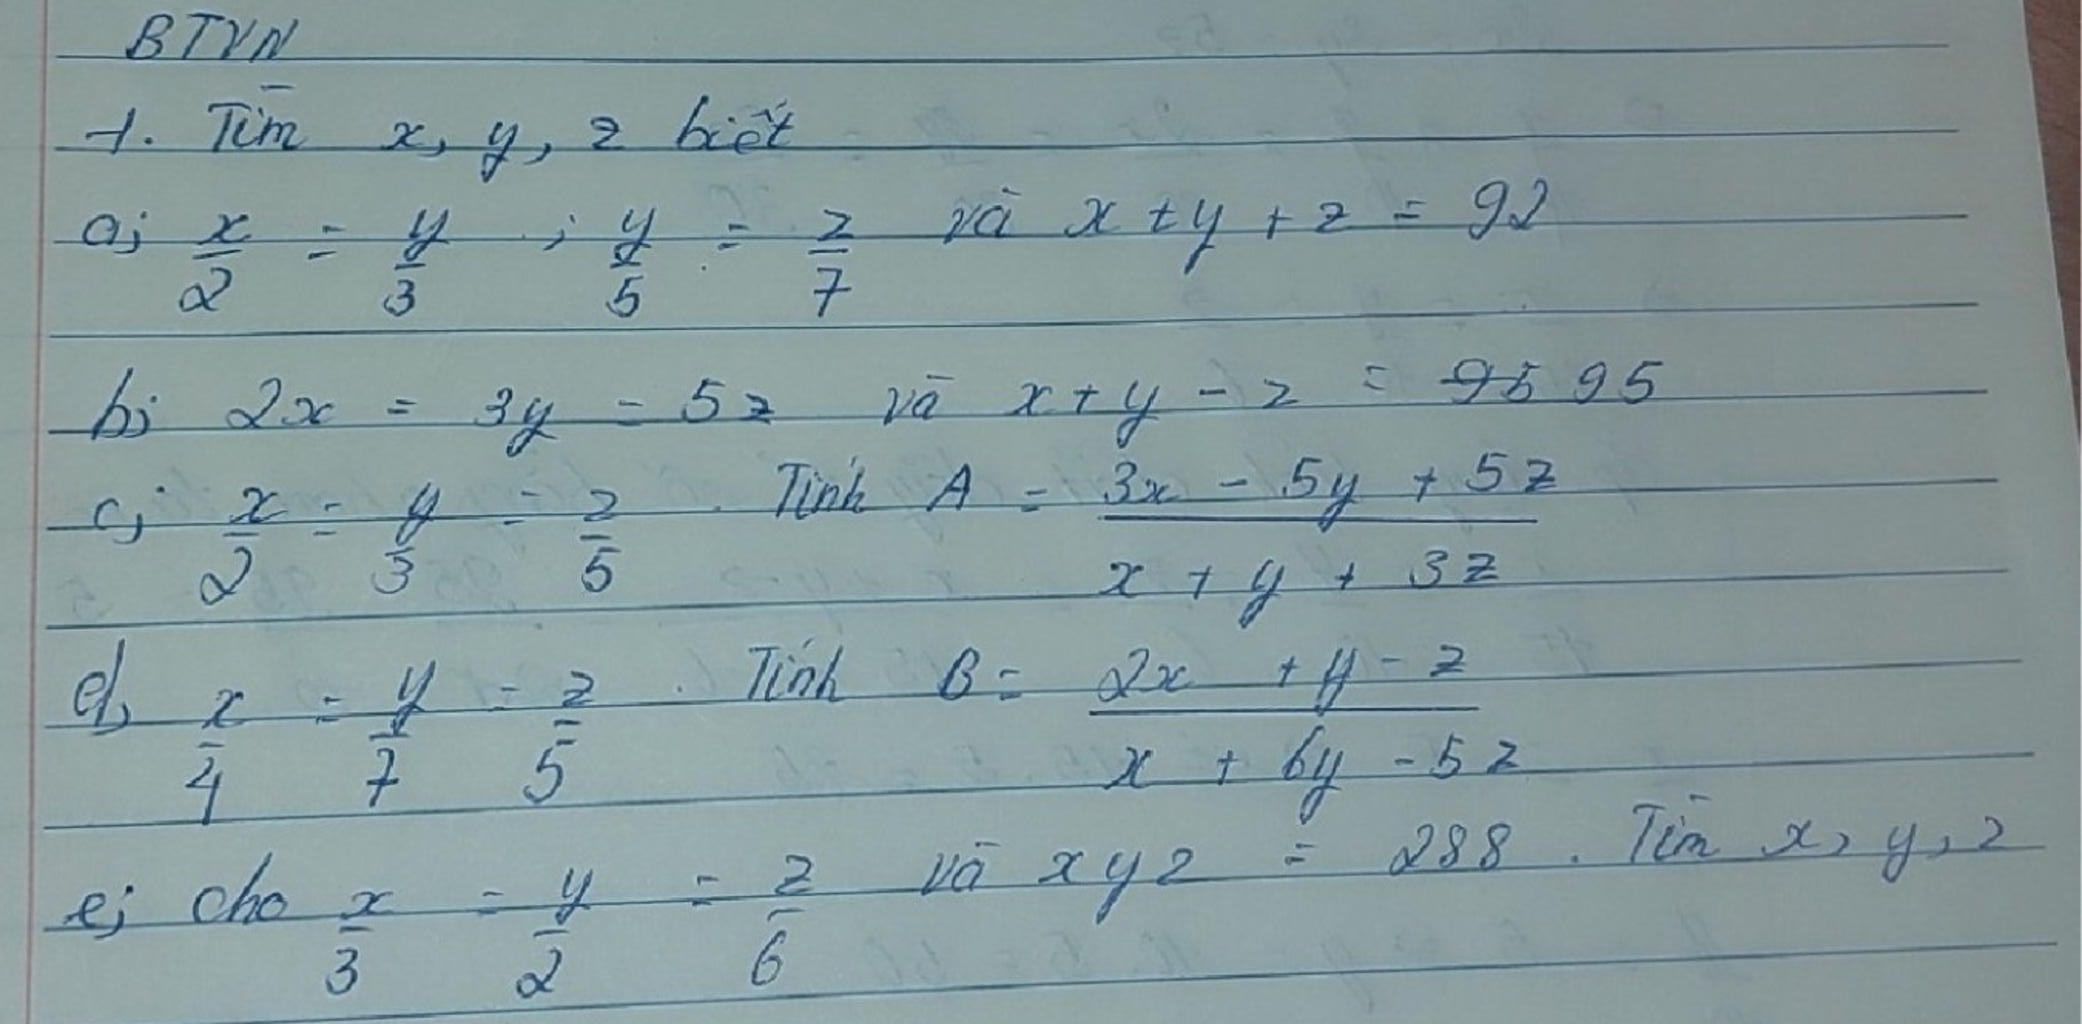 BTVN
1. Tìm x, y, z biết
a; x/2 = y/3 ; y/5 = z/7 và x + y + z = 92
b; 2x = 3y = 5z và x + y - z = 95 95
c; x/2 = y/3 = z/5 . Tính A = (3x - 5y + 5z)/(x + y + 3z)
d, x/4 = y/7 = z/5 . Tính B = (2x + y - z)/(x + 6y - 5z)
e; cho x/3 = y/2 = z/6 và xyz = 288 . Tìm x, y, z